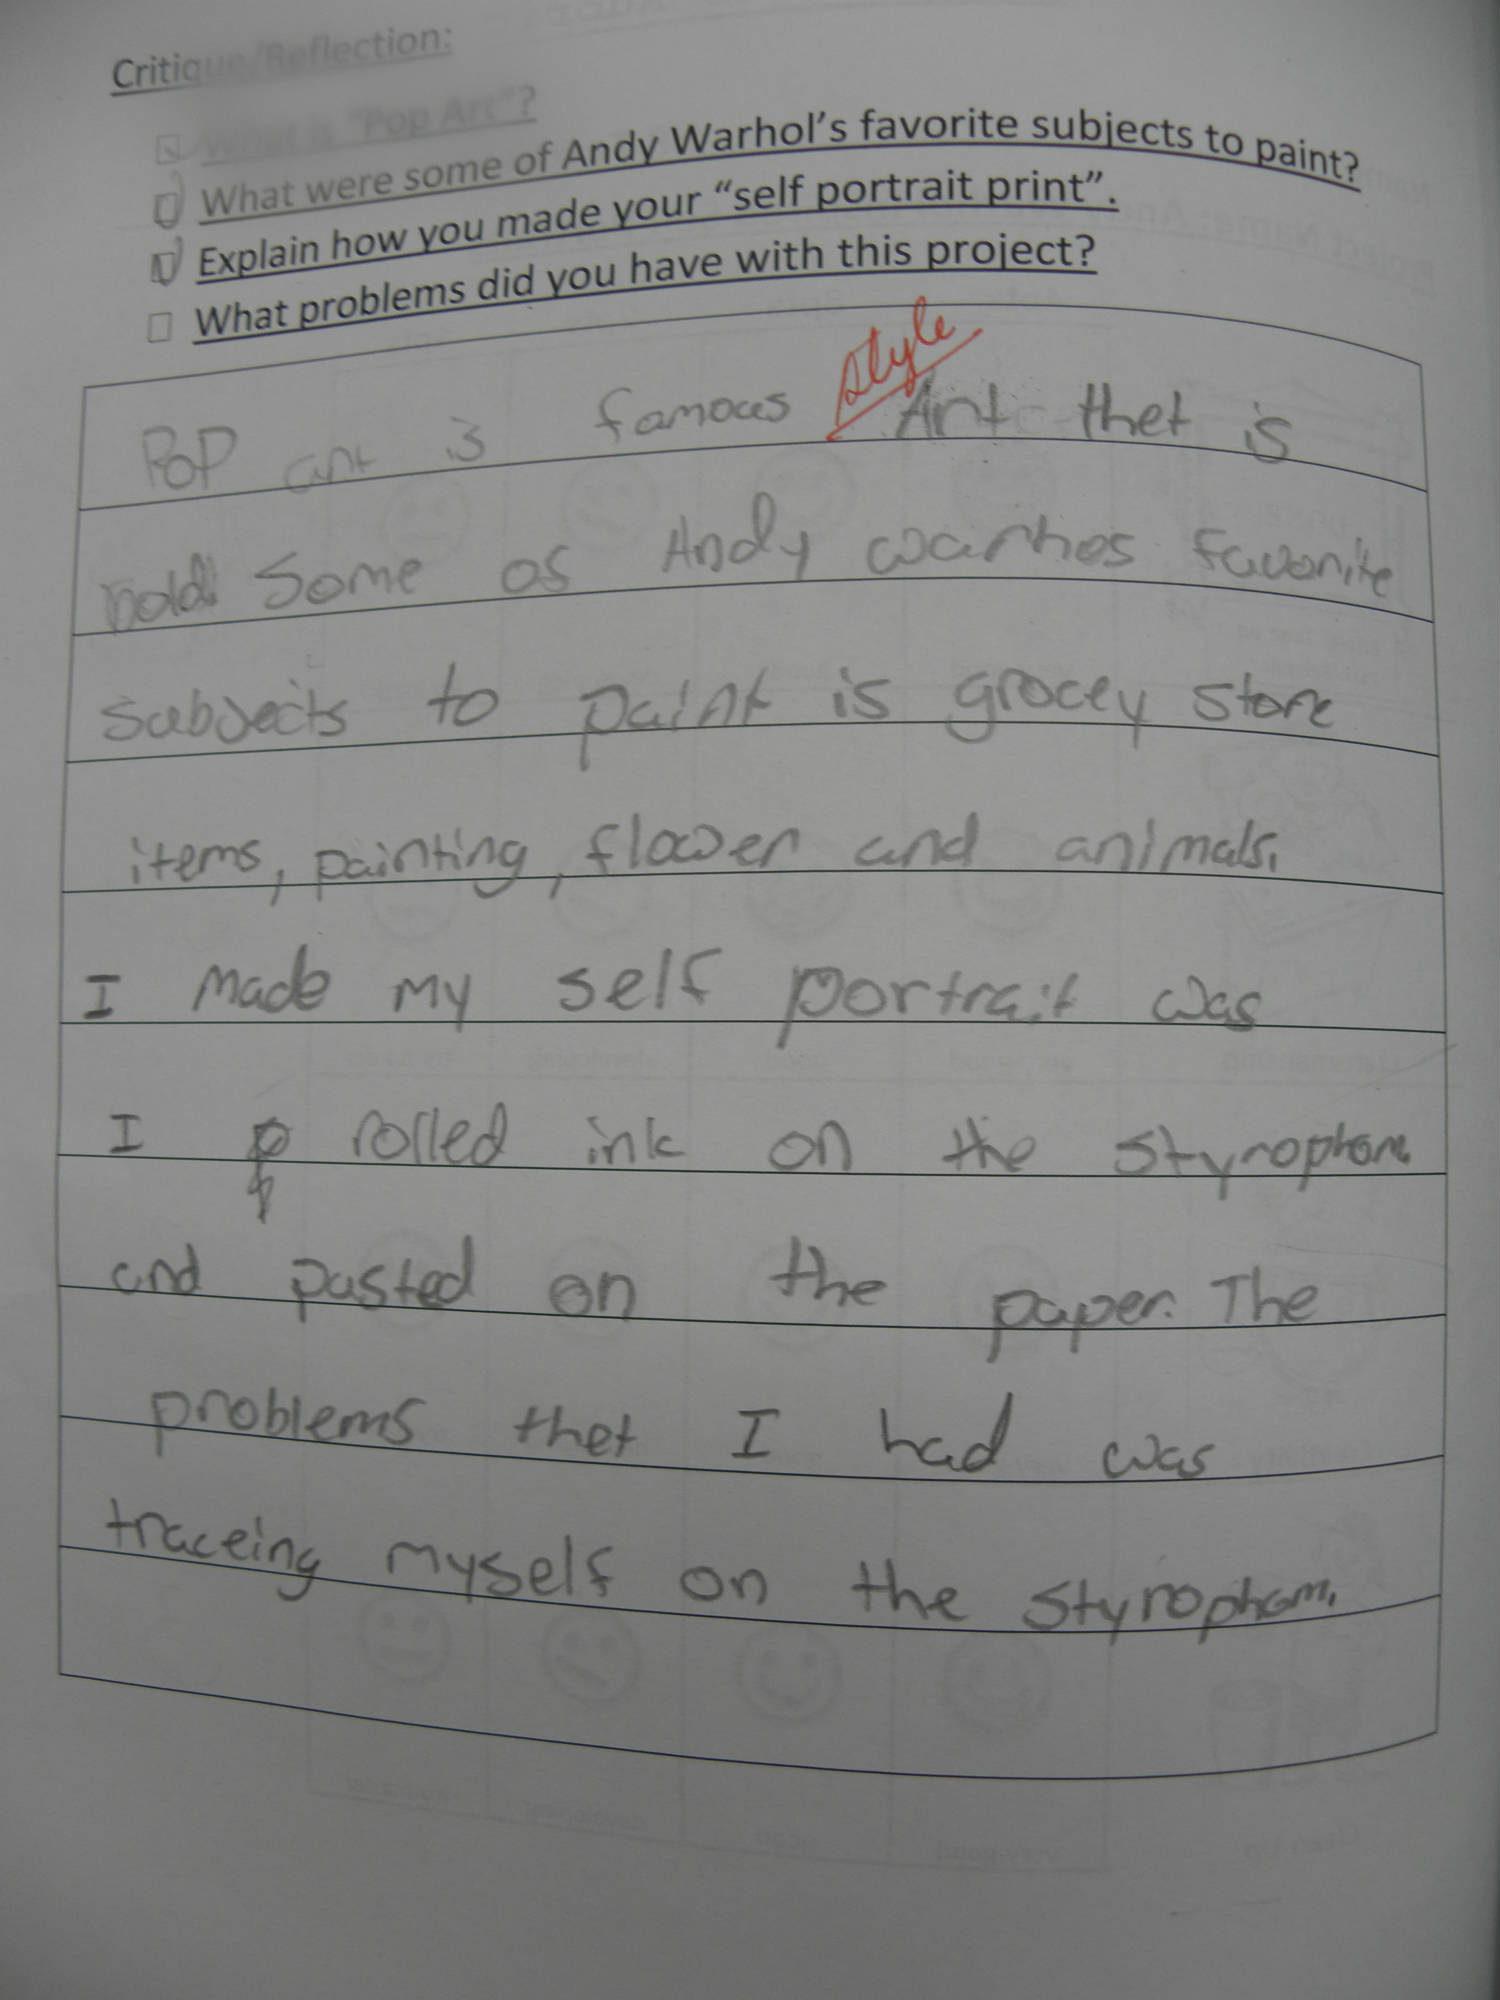 Critique/Reflection:
What is "Pop Art"?
What were some of Andy Warhol's favorite subjects to paint?
Explain how you made your "self portrait print".
What problems did you have with this project?
style
Pop art is famous Art thet is
bold. Some of Andy warhos favorite
subjects to paint is grocey store
items, painting, flower and animals.
I made my self portrait was
I rolled ink on the styrophom
and pasted on the paper. The
problems thet I had was
traceing myself on the styrophom.